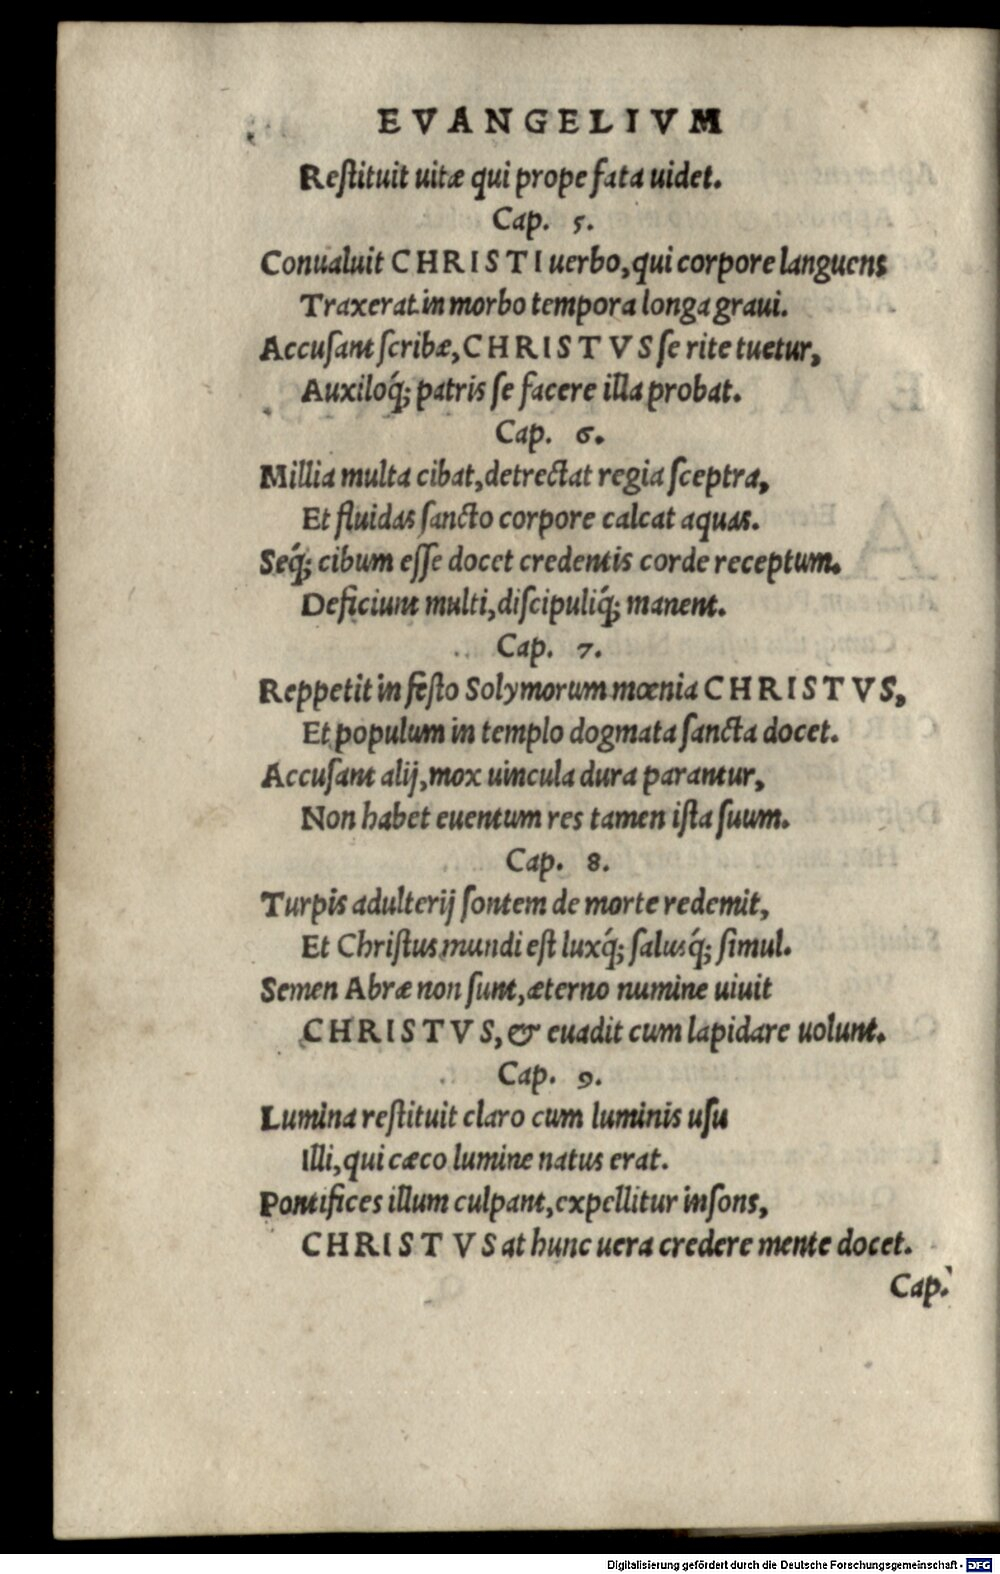 EVANGELIVM
Reſtituit uitæ qui prope fata uidet.
Cap. 5.
Conualuit CHRISTI uerbo, qui corpore languens
Traxerat in morbo tempora longa graui.
Accuſant ſcribæ, CHRISTVS ſe rite tuetur,
Auxiloq́; patris ſe facere illa probat.
Cap. 6.
Millia multa cibat, detrectat regia ſceptra,
Et fluidas ſancto corpore calcat aquas.
Seq́; cibum eſſe docet credentis corde receptum.
Deficiunt multi, diſcipuliq́; manent.
Cap. 7.
Reppetit in feſto Solymorum mœnia CHRISTVS,
Et populum in templo dogmata ſancta docet.
Accuſant alij, mox uincula dura parantur,
Non habet euentum res tamen iſta ſuum.
Cap. 8.
Turpis adulterij ſontem de morte redemit,
Et Chriſtus mundi eſt luxq́; ſalusq́; ſimul.
Semen Abræ non ſunt, æterno numine uiuit
CHRISTVS, & euadit cum lapidare uolunt.
Cap. 9.
Lumina reſtituit claro cum luminis uſu
Illi, qui cæco lumine natus erat.
Pontifices illum culpant, expellitur inſons,
CHRISTVS at hunc uera credere mente docet.
Cap.
Digitalisierung gefördert durch die Deutsche Forschungsgemeinschaft - DFG